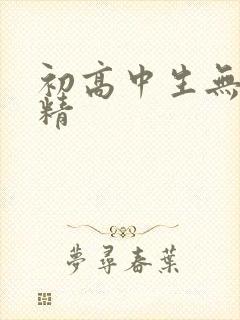 初高中生無
精
夢尋春葉